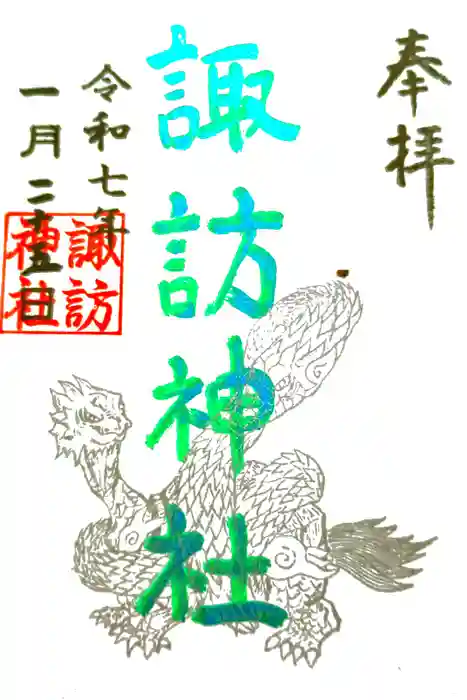 奉拝
諏訪神社
令和七年
一月二十五日
諏訪
神社